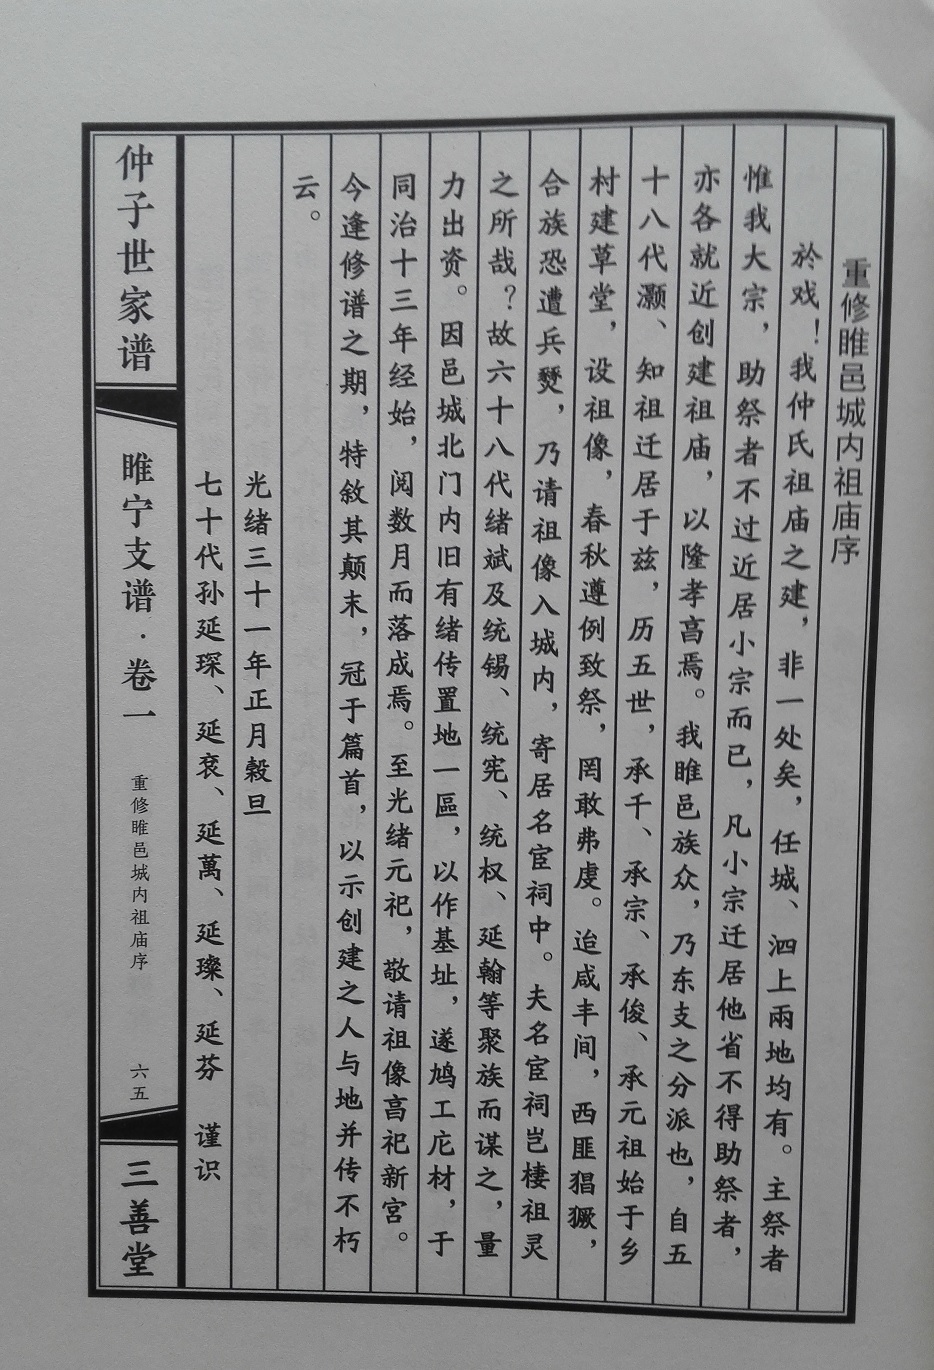 重修睢邑城内祖庙序
於戏！我仲氏祖庙之建，非一处矣，任城、泗上兩地均有。主祭者
惟我大宗，助祭者不过近居小宗而已，凡小宗迁居他省不得助祭者，
亦各就近创建祖庙，以隆孝亯焉。我睢邑族众，乃东支之分派也，自五
十八代灏、知祖迁居于兹，历五世，承千、承宗、承俊、承元祖始于乡
村建草堂，设祖像，春秋遵例致祭，罔敢弗虔。迨咸丰间，西匪猖獗，
合族恐遭兵燹，乃请祖像入城内，寄居名宦祠中。夫名宦祠岂棲祖灵
之所哉？故六十八代绪斌及统锡、统宪、统权、延翰等聚族而谋之，量
力出资。因邑城北门内旧有绪传置地一區，以作基址，遂鸠工庀材，于
同治十三年经始，阅数月而落成焉。至光绪元祀，敬请祖像亯祀新宫。
今逢修谱之期，特敘其颠末，冠于篇首，以示创建之人与地并传不朽
云。
光绪三十一年正月榖旦
七十代孙延琛、延衮、延萬、延璨、延芬 谨识
仲子世家谱
睢宁支谱·卷一
重修睢邑城内祖庙序
六五
三善堂